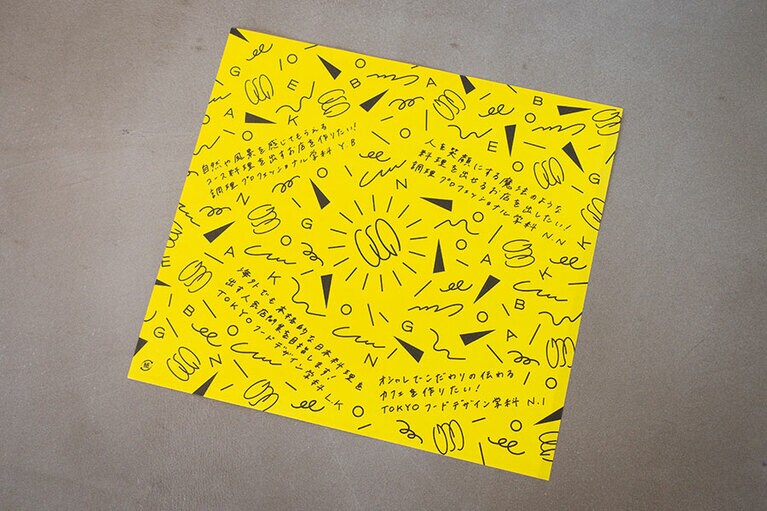 自然や風景を感じてもらえる
コース料理を出すお店を作りたい!
調理プロフェッショナル学科 Y.B
人を笑顔にする魔法のような
料理を出せるお店を出したい!
調理プロフェッショナル学科 N.N
海外でも本格的な日本料理を
出す人気店開業を目指します!
TOKYOフードデザイン学科 L.K
オシャレでこだわりの伝わる
カフェを作りたい!
TOKYOフードデザイン学科 N.I